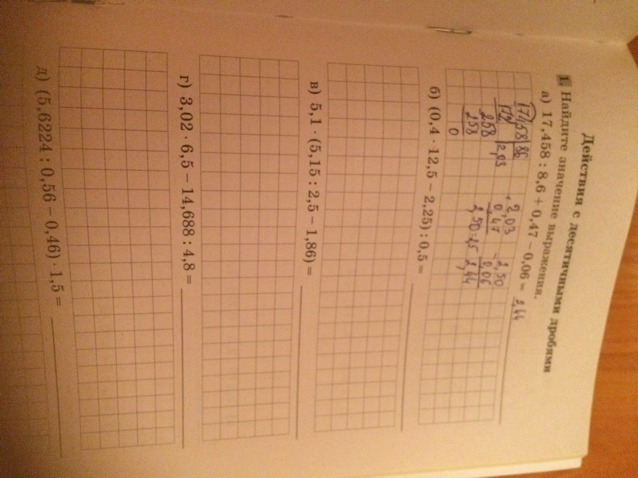 Действия с десятичными дробями
1. Найдите значение выражения.
а) 17,458 : 8,6 + 0,47 − 0,06 = 2,44
174,58 86
172 2,03
258
258
0
2,03
0,47
2,50=2,5
2,50
0,06
2,44
б) (0,4 · 12,5 − 2,25) : 0,5 =
в) 5,1 · (5,15 : 2,5 − 1,86) =
г) 3,02 · 6,5 − 14,688 : 4,8 =
д) (5,6224 : 0,56 − 0,46) · 1,5 =